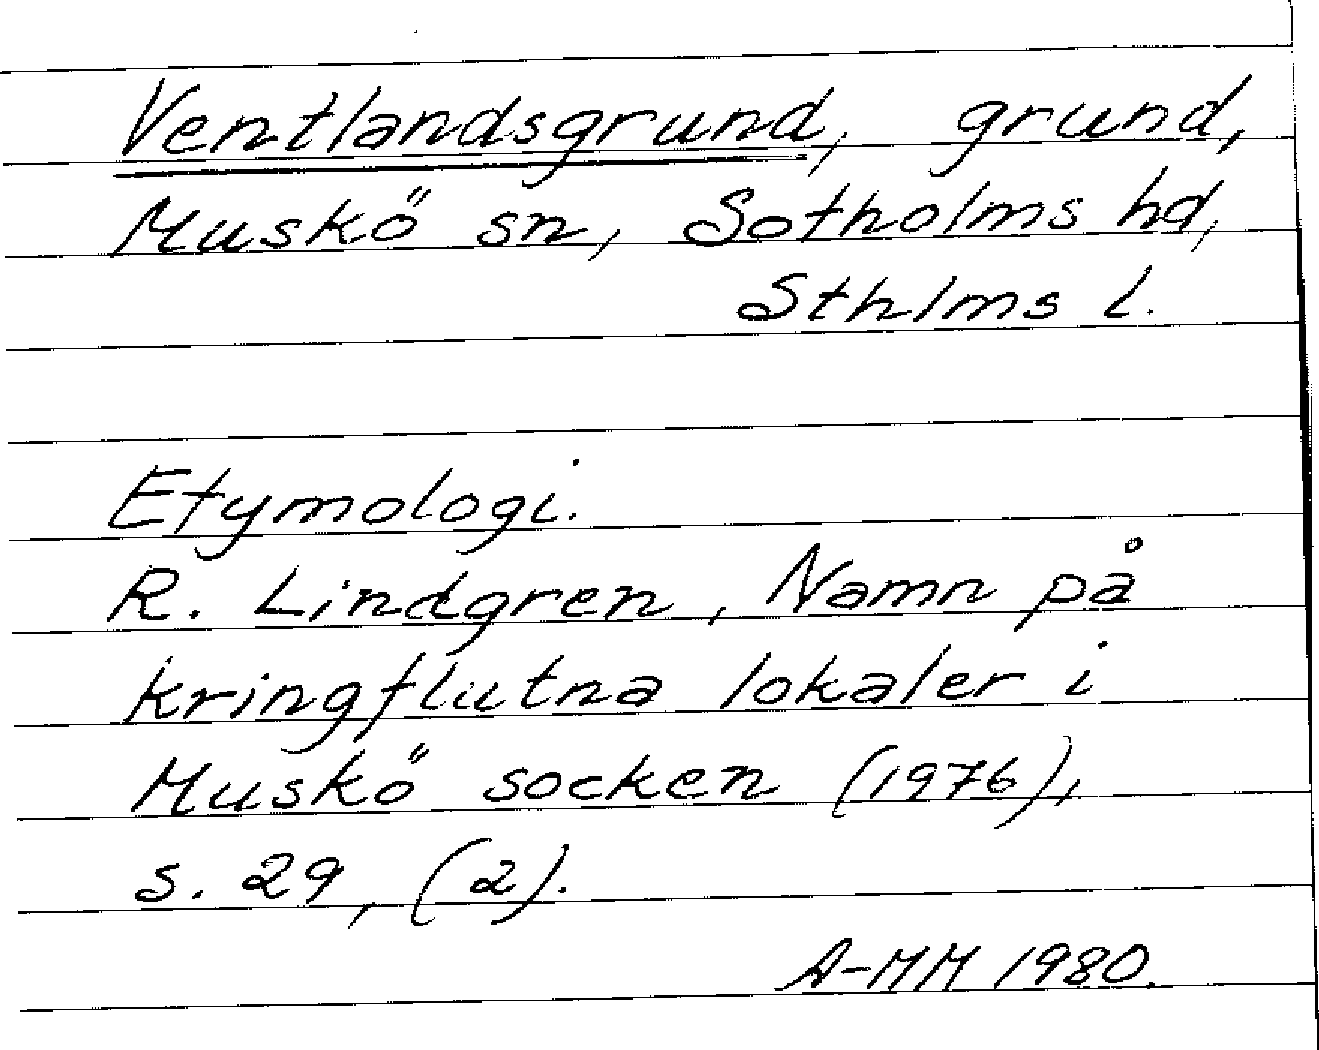 Ventlandsgrund, grund,
Muskö sn, Sotholms hd,
Sthlms l.
Etymologi.
R. Lindgren, Namn på
kringflutna lokaler i
Muskö socken (1976),
s. 29, (2).
A-MM 1980.